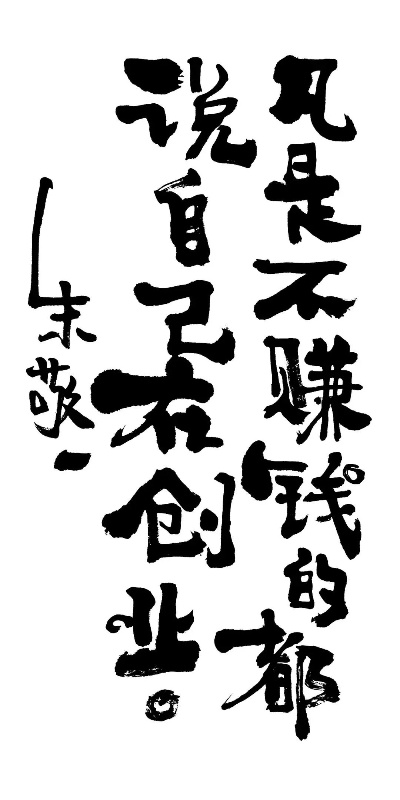 凡是不赚钱的都
说自己在创业。
朱敬一